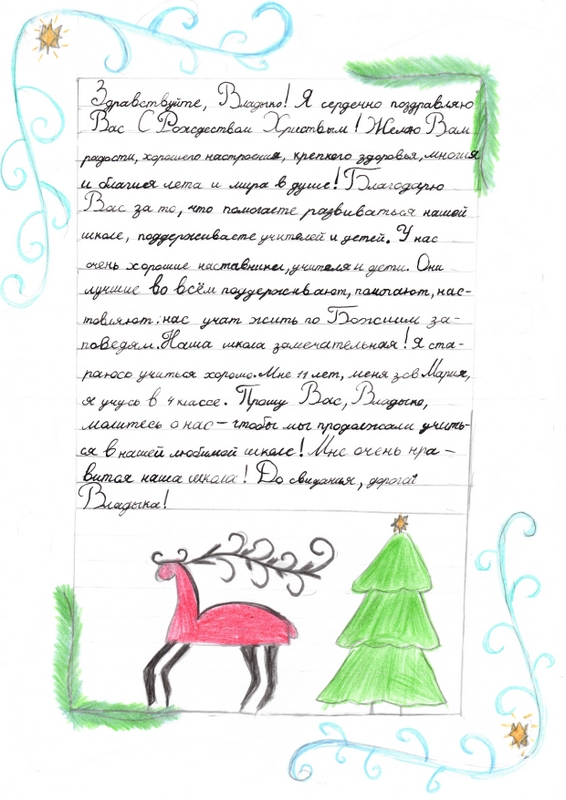 Здравствуйте, Владыко! Я сердечно поздравляю
Вас С Рождеством Христвым! Желаю Вам
радости, хорошего настроения, крепкого здоровья, многия
и благия лета и мира в душе! Благодарю
Вас за то, что помогаете развиваться нашей
школе, поддерживаете учителей и детей. У нас
очень хорошие наставники, учителя и дети. Они
лучшие во всём поддерживают, помогают, нас-
товляют; нас учат жить по Божиим за-
поведям. Наша школа замечательная! Я ста-
раюсь учиться хорошо. Мне 11 лет, меня зов Мария,
я учусь в 4 классе. Прошу Вас, Владыко,
молитесь о нас – чтобы мы продолжали учить-
ся в нашей любимой школе! Мне очень нра-
вится наша школа! До свидания, дорогой
Владыка!